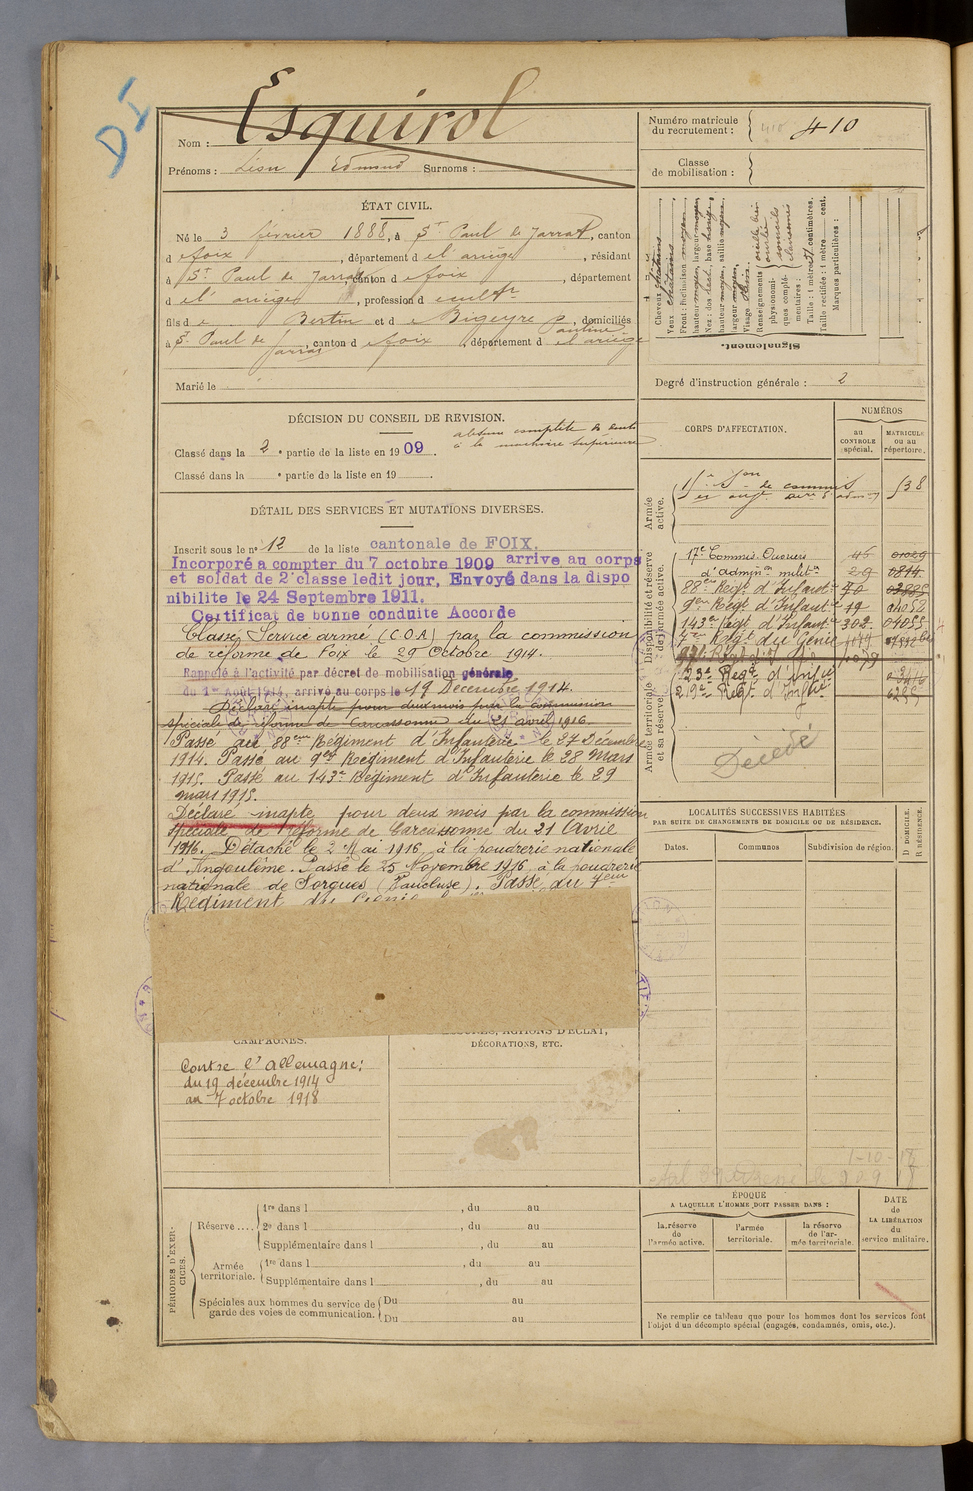 DI
Nom : Esquirol
Prénoms : Léon Edmond Surnoms :
Numéro matricule
du recrutement : 410 410
Classe
de mobilisation :
ÉTAT CIVIL.
Né le 3 février 1888, à St Paul de Jarrat, canton
d e foix, département d e l'ariège, résidant
à St Paul de Jarrat, canton d e foix, département
d e l'ariège, profession d cultr
fils d e Bertin et d e Bigeyre Pauline, domiciliés
à St Paul de Jarrat, canton d e foix, département d e l'ariège
Marié le
Signalement.
Cheveux châtains
Yeux
Front : inclinaison moyen
hauteur moyen, largeur moyen
Nez : dos rect. base
hauteur moyen, saillie moyen,
largeur moyen,
Visage
Renseignements
physionomi-
ques complé-
mentaires :
sourcils
Taille : 1 mètre centimètres.
Taille rectifiée : 1 mètre cent.
Marques particulières :
Degré d'instruction générale : 2
DÉCISION DU CONSEIL DE REVISION.
Classé dans la 2e partie de la liste en 1909.
absence complète de dents
à la machoire supérieure
Classé dans la e partie de la liste en 19 .
DÉTAIL DES SERVICES ET MUTATIONS DIVERSES.
Inscrit sous le n° 12 de la liste cantonale de FOIX.
Incorporé a compter du 7 octobre 1909 arrive au corps
et soldat de 2e classe ledit jour. Envoyé dans la dispo
nibilite le 24 Septembre 1911.
Certificat de bonne conduite Accordé
Classé Service armé (C.O.A) par la commission
de réforme de Foix le 29 Octobre 1914.
Rappelé à l'activité par décret de mobilisation générale
du 1er Août 1914, arrivé au corps le 19 Décembre 1914.
Déclaré inapte pour deux mois par la commission
spéciale de réforme de Carcassonne du 21 avril 1916.
Passé au 88eme Régiment d'Infanterie le 27 Décembre
1914. Passé au 9eme Régiment d'Infanterie le 28 Mars
1915. Passé au 143e Régiment d'Infanterie le 29
mars 1915.
Déclaré inapte pour deux mois par la commission
spéciale de Réforme de Carcassonne du 21 Avril
1916. Détaché le 2 Mai 1916 à la poudrerie nationale
d'Angoulême. Passé le 25 Novembre 1916 à la poudrerie
nationale de Sorgues (Vaucluse). Passé au 7eme
Régiment du Génie
CORPS D'AFFECTATION.
NUMÉROS
au
CONTROLE
spécial.
MATRICULE
ou au
répertoire.
Armée
active.
de commis
538
Disponibilité et réserve
de l'armée active.
17e Commis Ouvriers 46 01029
d'adminon milite 29 0814
88eme Regt d'Infante 70
9eme Régt d'Infante 19 04052
143e Regt d'Infante 302 04055
7eme Regt du Génie
Armée territoriale
et sa réserve.
23e Regt d'Infie
219e Regt d'Infie
Décédé
LOCALITÉS SUCCESSIVES HABITÉES
PAR SUITE DE CHANGEMENTS DE DOMICILE OU DE RÉSIDENCE.
Dates.
Communes
Subdivision de région.
D DOMICILE.
R RÉSIDENCE.
CAMPAGNES.
Contre l'Allemagne :
du 19 décembre 1914
au 7 octobre 1918
BLESSURES, ACTIONS D'ÉCLAT,
DÉCORATIONS, ETC.
1-10-18
PÉRIODES D'EXER-
CICES.
Réserve....
1re dans l , du au
2e dans l , du au
Supplémentaire dans l , du au
Armée
territoriale.
1re dans l , du au
Supplémentaire dans l , du au
Spéciales aux hommes du service de
garde des voies de communication.
Du au
Du au
ÉPOQUE
A LAQUELLE L'HOMME DOIT PASSER DANS :
la réserve
de
l'armée active.
l'armée
territoriale.
la réserve
de l'ar-
mée territoriale.
DATE
de
LA LIBÉRATION
du
service militaire.
Ne remplir ce tableau que pour les hommes dont les services font
l'objet d'un décompte spécial (engagés, condamnés, omis, etc.).